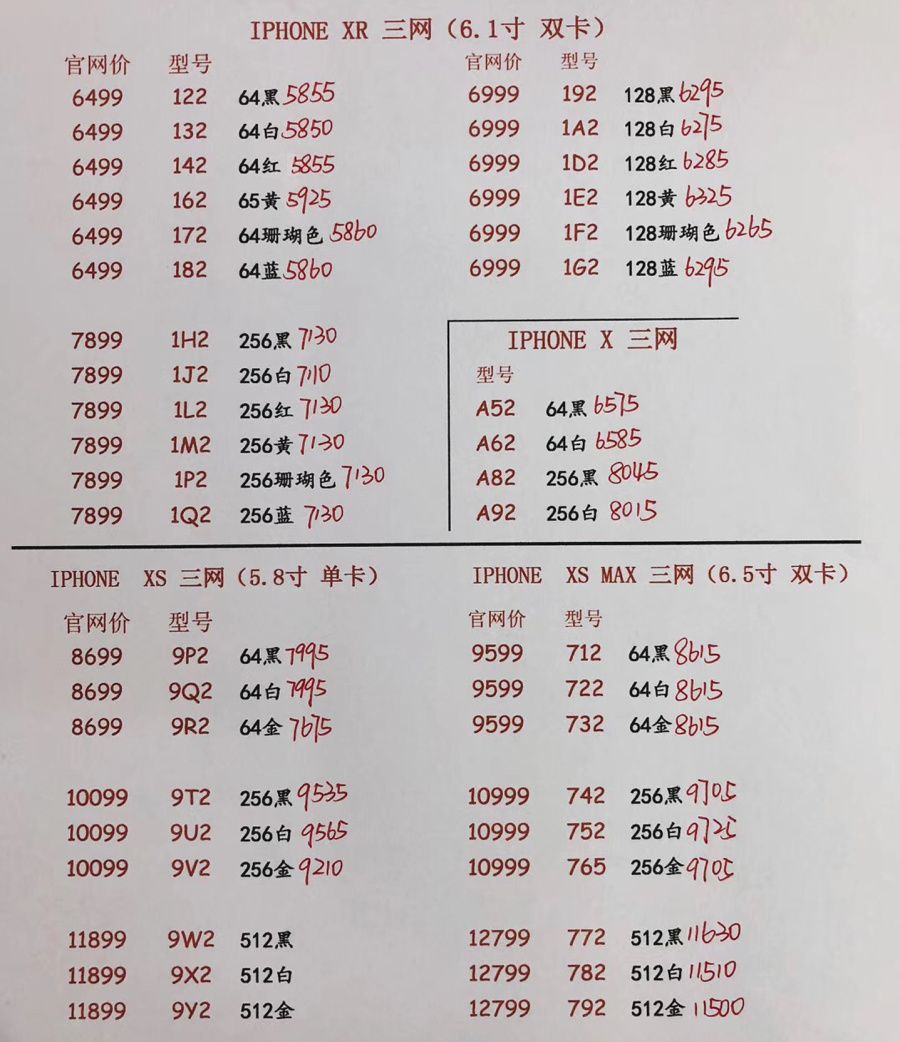 IPHONE XR 三网（6.1寸 双卡）
官网价 型号 官网价 型号
6499 122 64黑 5855 6999 192 128黑 6295
6499 132 64白 5850 6999 1A2 128白 6275
6499 142 64红 5855 6999 1D2 128红 6285
6499 162 65黄 5925 6999 1E2 128黄 6325
6499 172 64珊瑚色 5860 6999 1F2 128珊瑚色 6265
6499 182 64蓝 5860 6999 1G2 128蓝 6295
7899 1H2 256黑 7130
7899 1J2 256白 7110
7899 1L2 256红 7130
7899 1M2 256黄 7130
7899 1P2 256珊瑚色 7130
7899 1Q2 256蓝 7130
IPHONE X 三网
型号
A52 64黑 6575
A62 64白 6585
A82 256黑 8045
A92 256白 8015
IPHONE XS 三网（5.8寸 单卡）
官网价 型号
8699 9P2 64黑 7995
8699 9Q2 64白 7995
8699 9R2 64金 7675
10099 9T2 256黑 9535
10099 9U2 256白 9565
10099 9V2 256金 9210
11899 9W2 512黑
11899 9X2 512白
11899 9Y2 512金
IPHONE XS MAX 三网（6.5寸 双卡）
官网价 型号
9599 712 64黑 8615
9599 722 64白 8615
9599 732 64金 8615
10999 742 256黑 9705
10999 752 256白 9725
10999 765 256金 9705
12799 772 512黑 11630
12799 782 512白 11510
12799 792 512金 11500